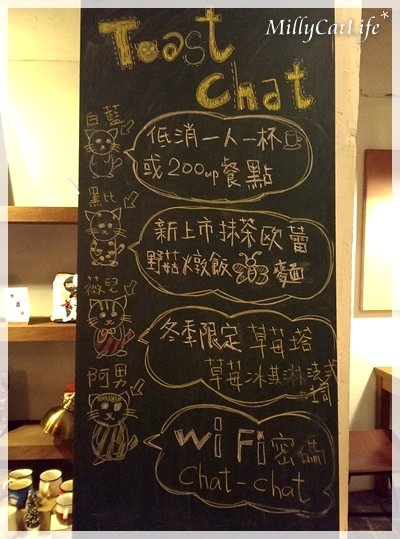 MillyCatLife*
Toast
chat
白藍
低消一人一杯
或200up餐點
黑比
新上市抹茶歐蕾
野菇燉飯 麵
薇兒
冬季限定 草莓塔
草莓冰淇淋法式
阿男
WiFi密碼
chat-chat